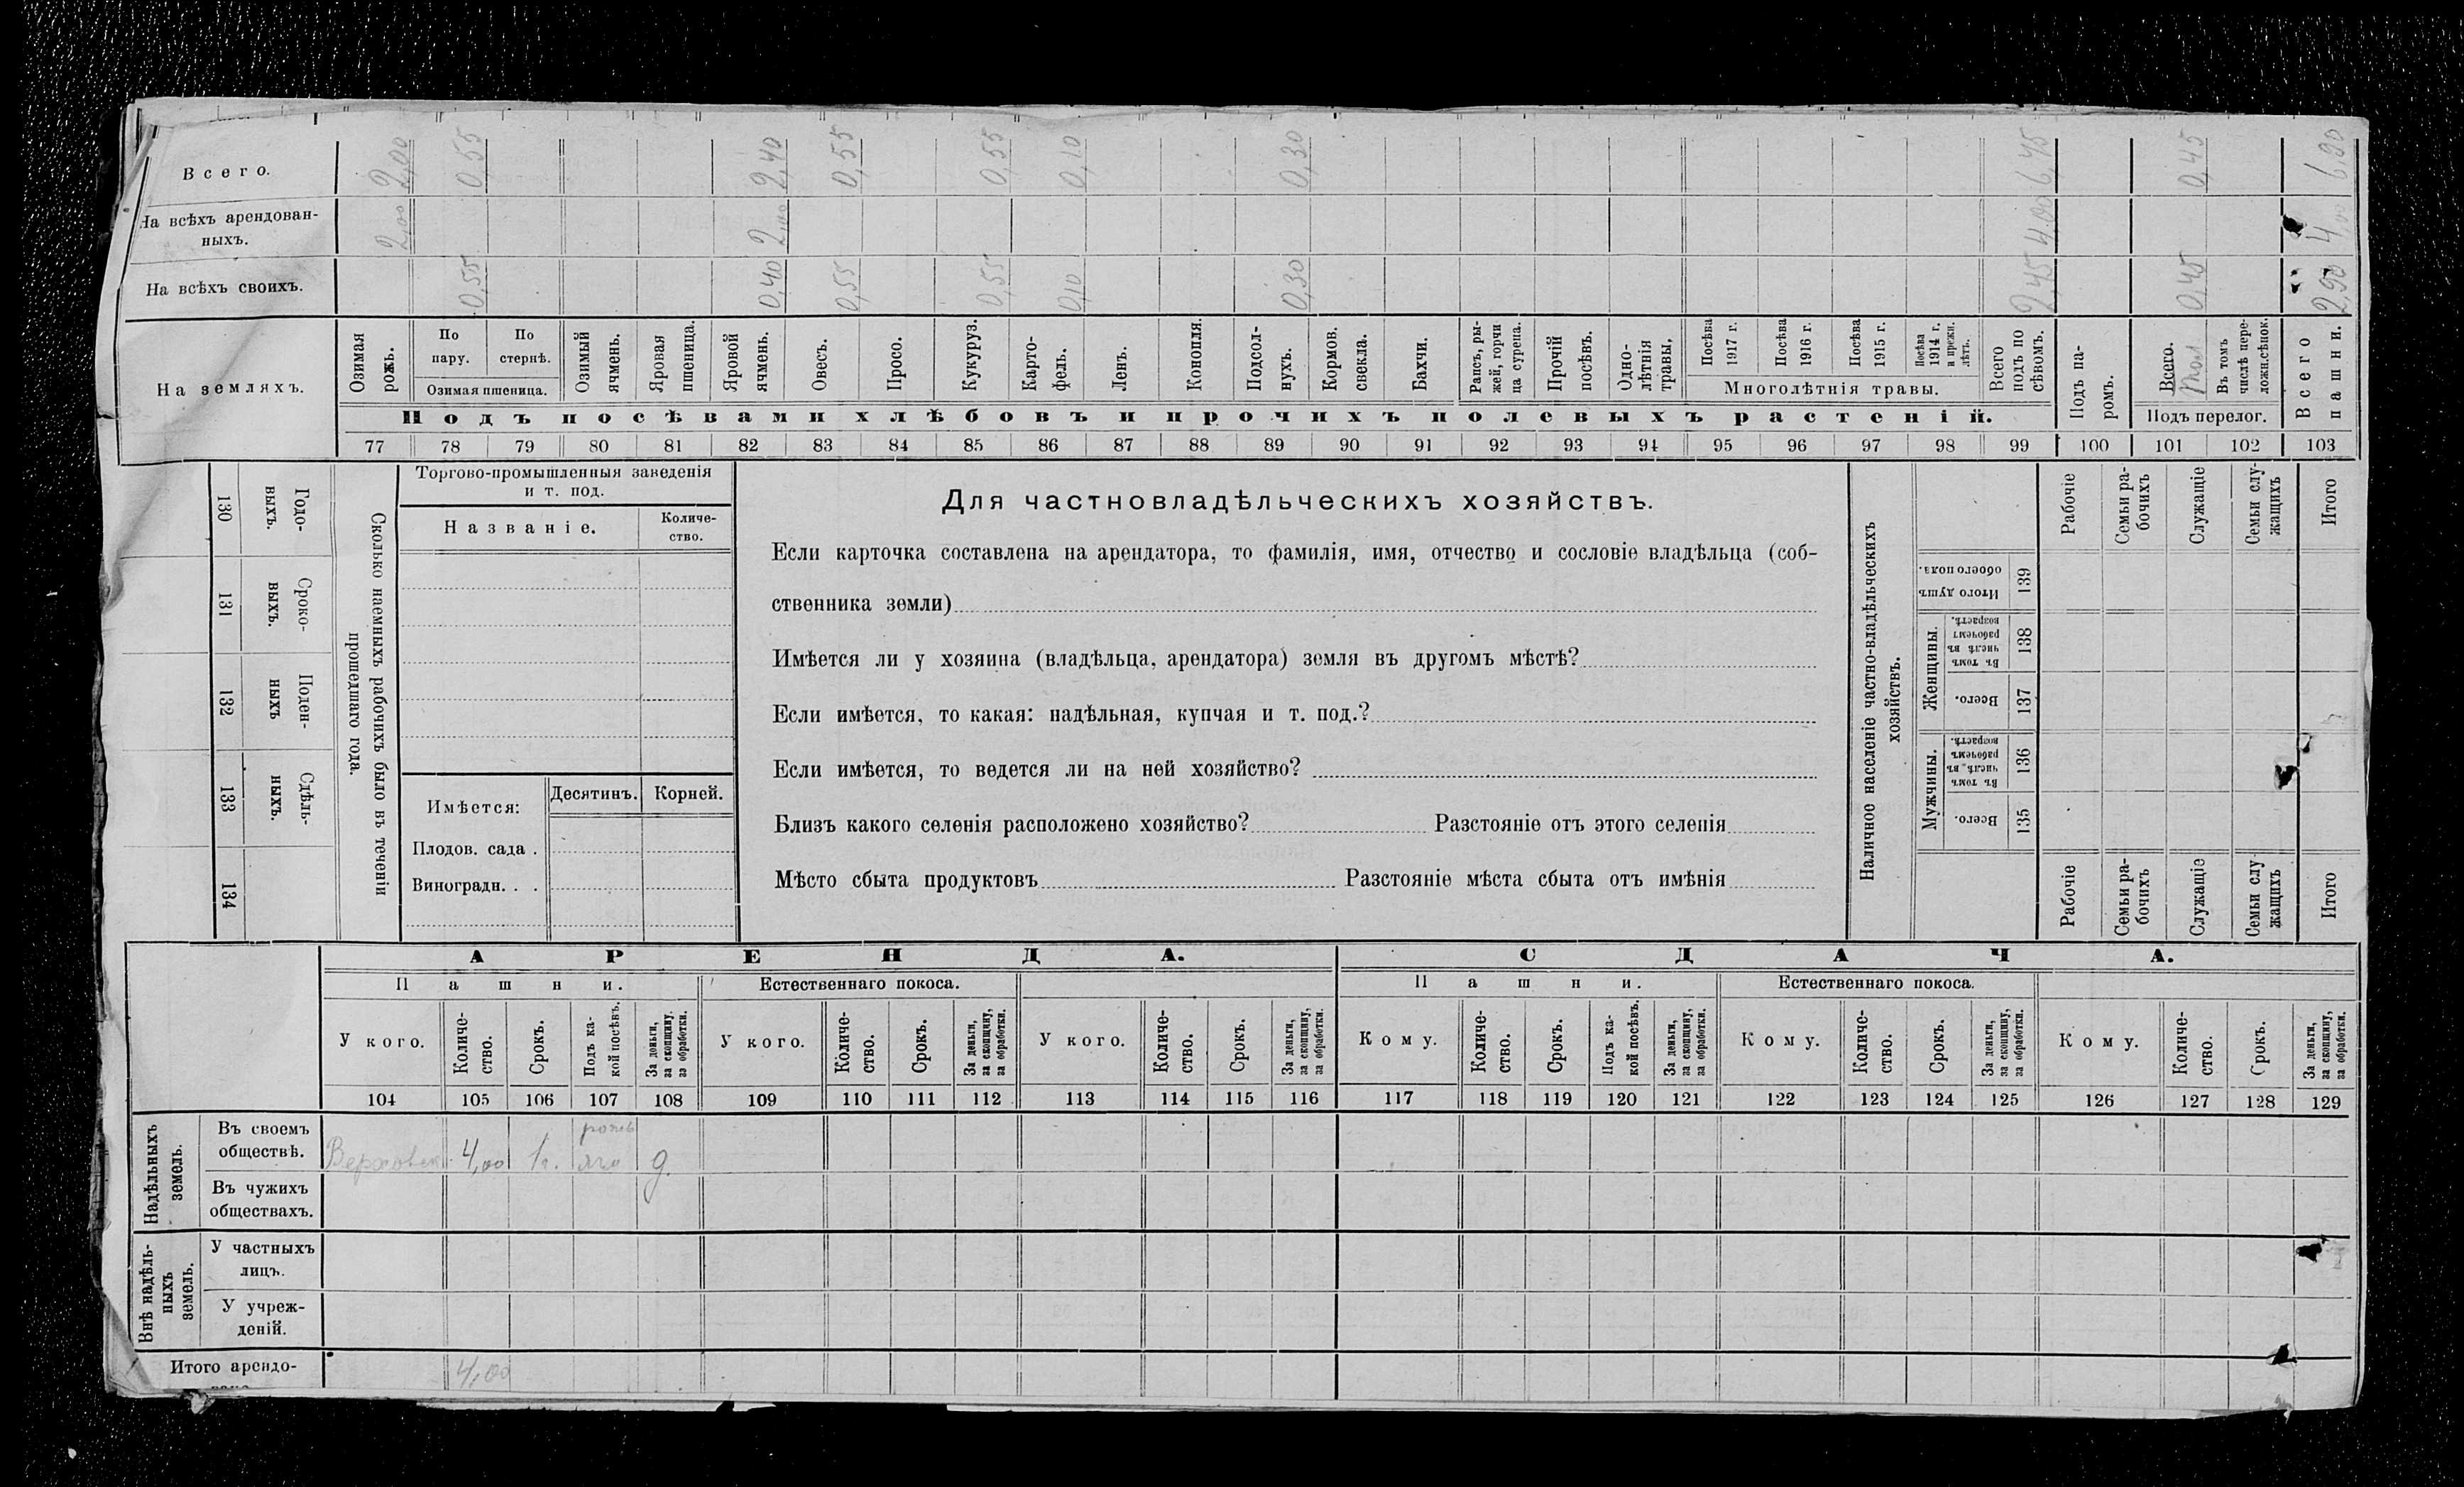 Всего. 2,00 0,55 2,40 0,55 0,55 0,10 0,30 6,45 0,45 6,90
На всѣхъ арендован-
ныхъ. 2,00 2,00 4,00 4,00
На всѣхъ своихъ. 0,55 0,40 0,55 0,55 0,10 0,30 2,45 0,45 2,90
На земляхъ.
Озимая рожь.
По пару.
По стернѣ.
Озимая пшеница.
Озимый ячмень.
Яровая пшеница.
Яровой ячмень.
Овесъ.
Просо.
Кукуруз.
Карто-
фель.
Ленъ.
Конопля.
Подсол-
нухъ.
Кормов.
свекла.
Бахчи.
Рапсъ, ры-
жей, горчи
ца сурепа.
Прочій посѣвъ.
Одно-
лѣтнія
травы,
Посѣва 1917 г.
Посѣва 1916 г.
Посѣва 1915 г.
Посѣва 1914 г. и прежн. лѣтъ.
Многолѣтнія травы.
Всего
подъ по
сѣвомъ.
Подъ па-
ромъ.
Всего.
Въ томъ
числѣ пере-
ложн.сѣнок.
Подъ перелог.
Всего пашни.
Подъ посѣвами хлѣбовъ и прочихъ полевыхъ растеній.
77 78 79 80 81 82 83 84 85 86 87 88 89 90 91 92 93 94 95 96 97 98 99 100 101 102 103
Сколько наемныхъ рабочихъ было въ теченіи
прошедшаго года.
Годо-
выхъ.
130
Сроко-
выхъ.
131
Поден-
ныхъ
132
Сдѣль-
ныхъ.
133
134
Торгово-промышленныя заведенія
и т. под.
Названіе.
Количе-
ство.
Имѣется:
Десятинъ.
Корней.
Плодов. сада .
Виноградн. . .
Для частновладѣльческихъ хозяйствъ.
Если карточка составлена на арендатора, то фамилія, имя, отчество и сословіе владѣльца (соб-
ственника земли)
Имѣется ли у хозяина (владѣльца, арендатора) земля въ другомъ мѣстѣ?
Если имѣется, то какая: надѣльная, купчая и т. под.?
Если имѣется, то ведется ли на ней хозяйство?
Близъ какого селенія расположено хозяйство? Разстояніе отъ этого селенія
Мѣсто сбыта продуктовъ Разстояніе мѣста сбыта отъ имѣнія
Наличное населеніе частно-владѣльческихъ
хозяйствъ.
Рабочіе
Семьи ра-
бочихъ
Служащіе
Семьи слу-
жащихъ
Итого
Итого душъ
обоего пола.
139
Женщины.
Въ томъ
числѣ въ
рабочемъ
возрастѣ.
138
Всего.
137
Мужчины.
Въ томъ
числѣ въ
рабочемъ
возрастѣ.
136
Всего.
135
Рабочіе
Семьи ра-
бочихъ
Служащіе
Семьи слу-
жащихъ
Итого
АРЕНДА. СДАЧА.
Пашни. Естественнаго покоса. Пашни. Естественнаго покоса.
У кого.
Количе-
ство.
Срокъ.
Подъ ка-
кой посѣвъ.
За деньги,
за скопщину,
за обработки.
У кого.
Количе-
ство.
Срокъ.
За деньги,
за скопщину,
за обработки.
У кого.
Количе-
ство.
Срокъ.
За деньги,
за скопщину,
за обработки.
Кому.
Количе-
ство.
Срокъ.
Подъ ка-
кой посѣвъ.
За деньги,
за скопщину,
за обработки.
Кому.
Количе-
ство.
Срокъ.
За деньги,
за скопщину,
за обработки.
Кому.
Количе-
ство.
Срокъ.
За деньги,
за скопщину,
за обработки.
104 105 106 107 108 109 110 111 112 113 114 115 116 117 118 119 120 121 122 123 124 125 126 127 128 129
Надѣльныхъ
земель.
Въ своемъ
обществѣ. 4,00 1г. рожь д.
Въ чужихъ
обществахъ.
Внѣ надѣль-
ныхъ
земель.
У частныхъ
лицъ.
У учреж-
деній.
Итого арендо- 4,00